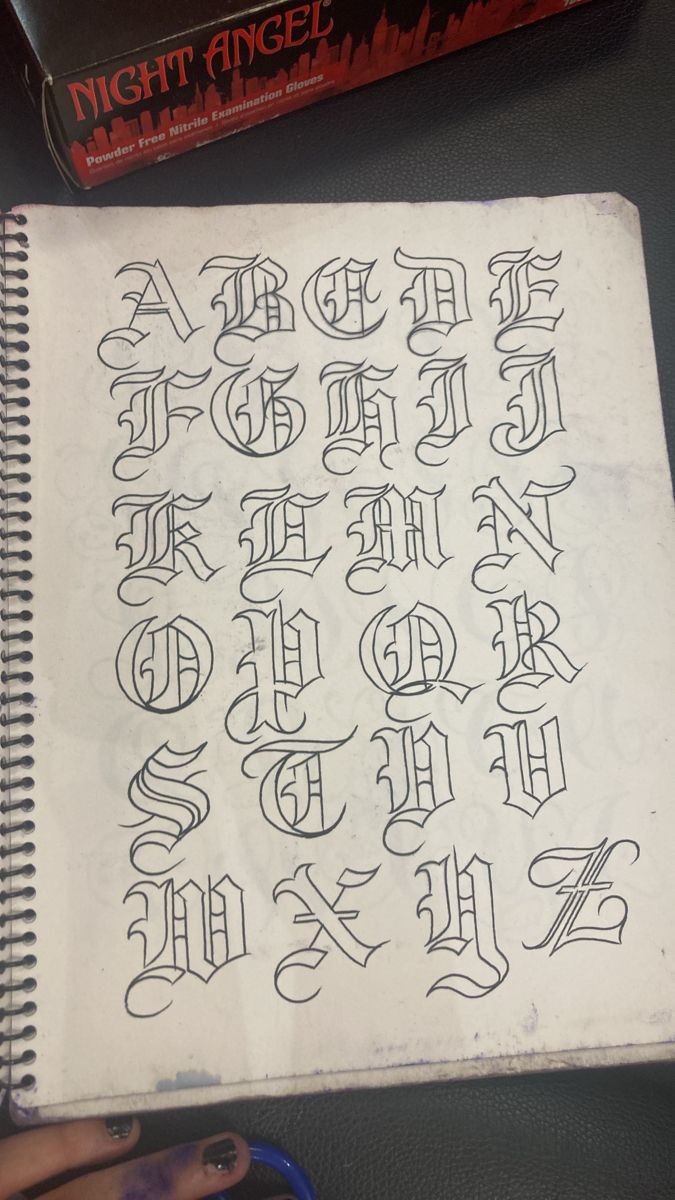 NIGHT ANGEL®
Powder Free Nitrile Examination Gloves
A B C D E
F G H I J
K L M N
O P Q R
S T U V
W X Y Z